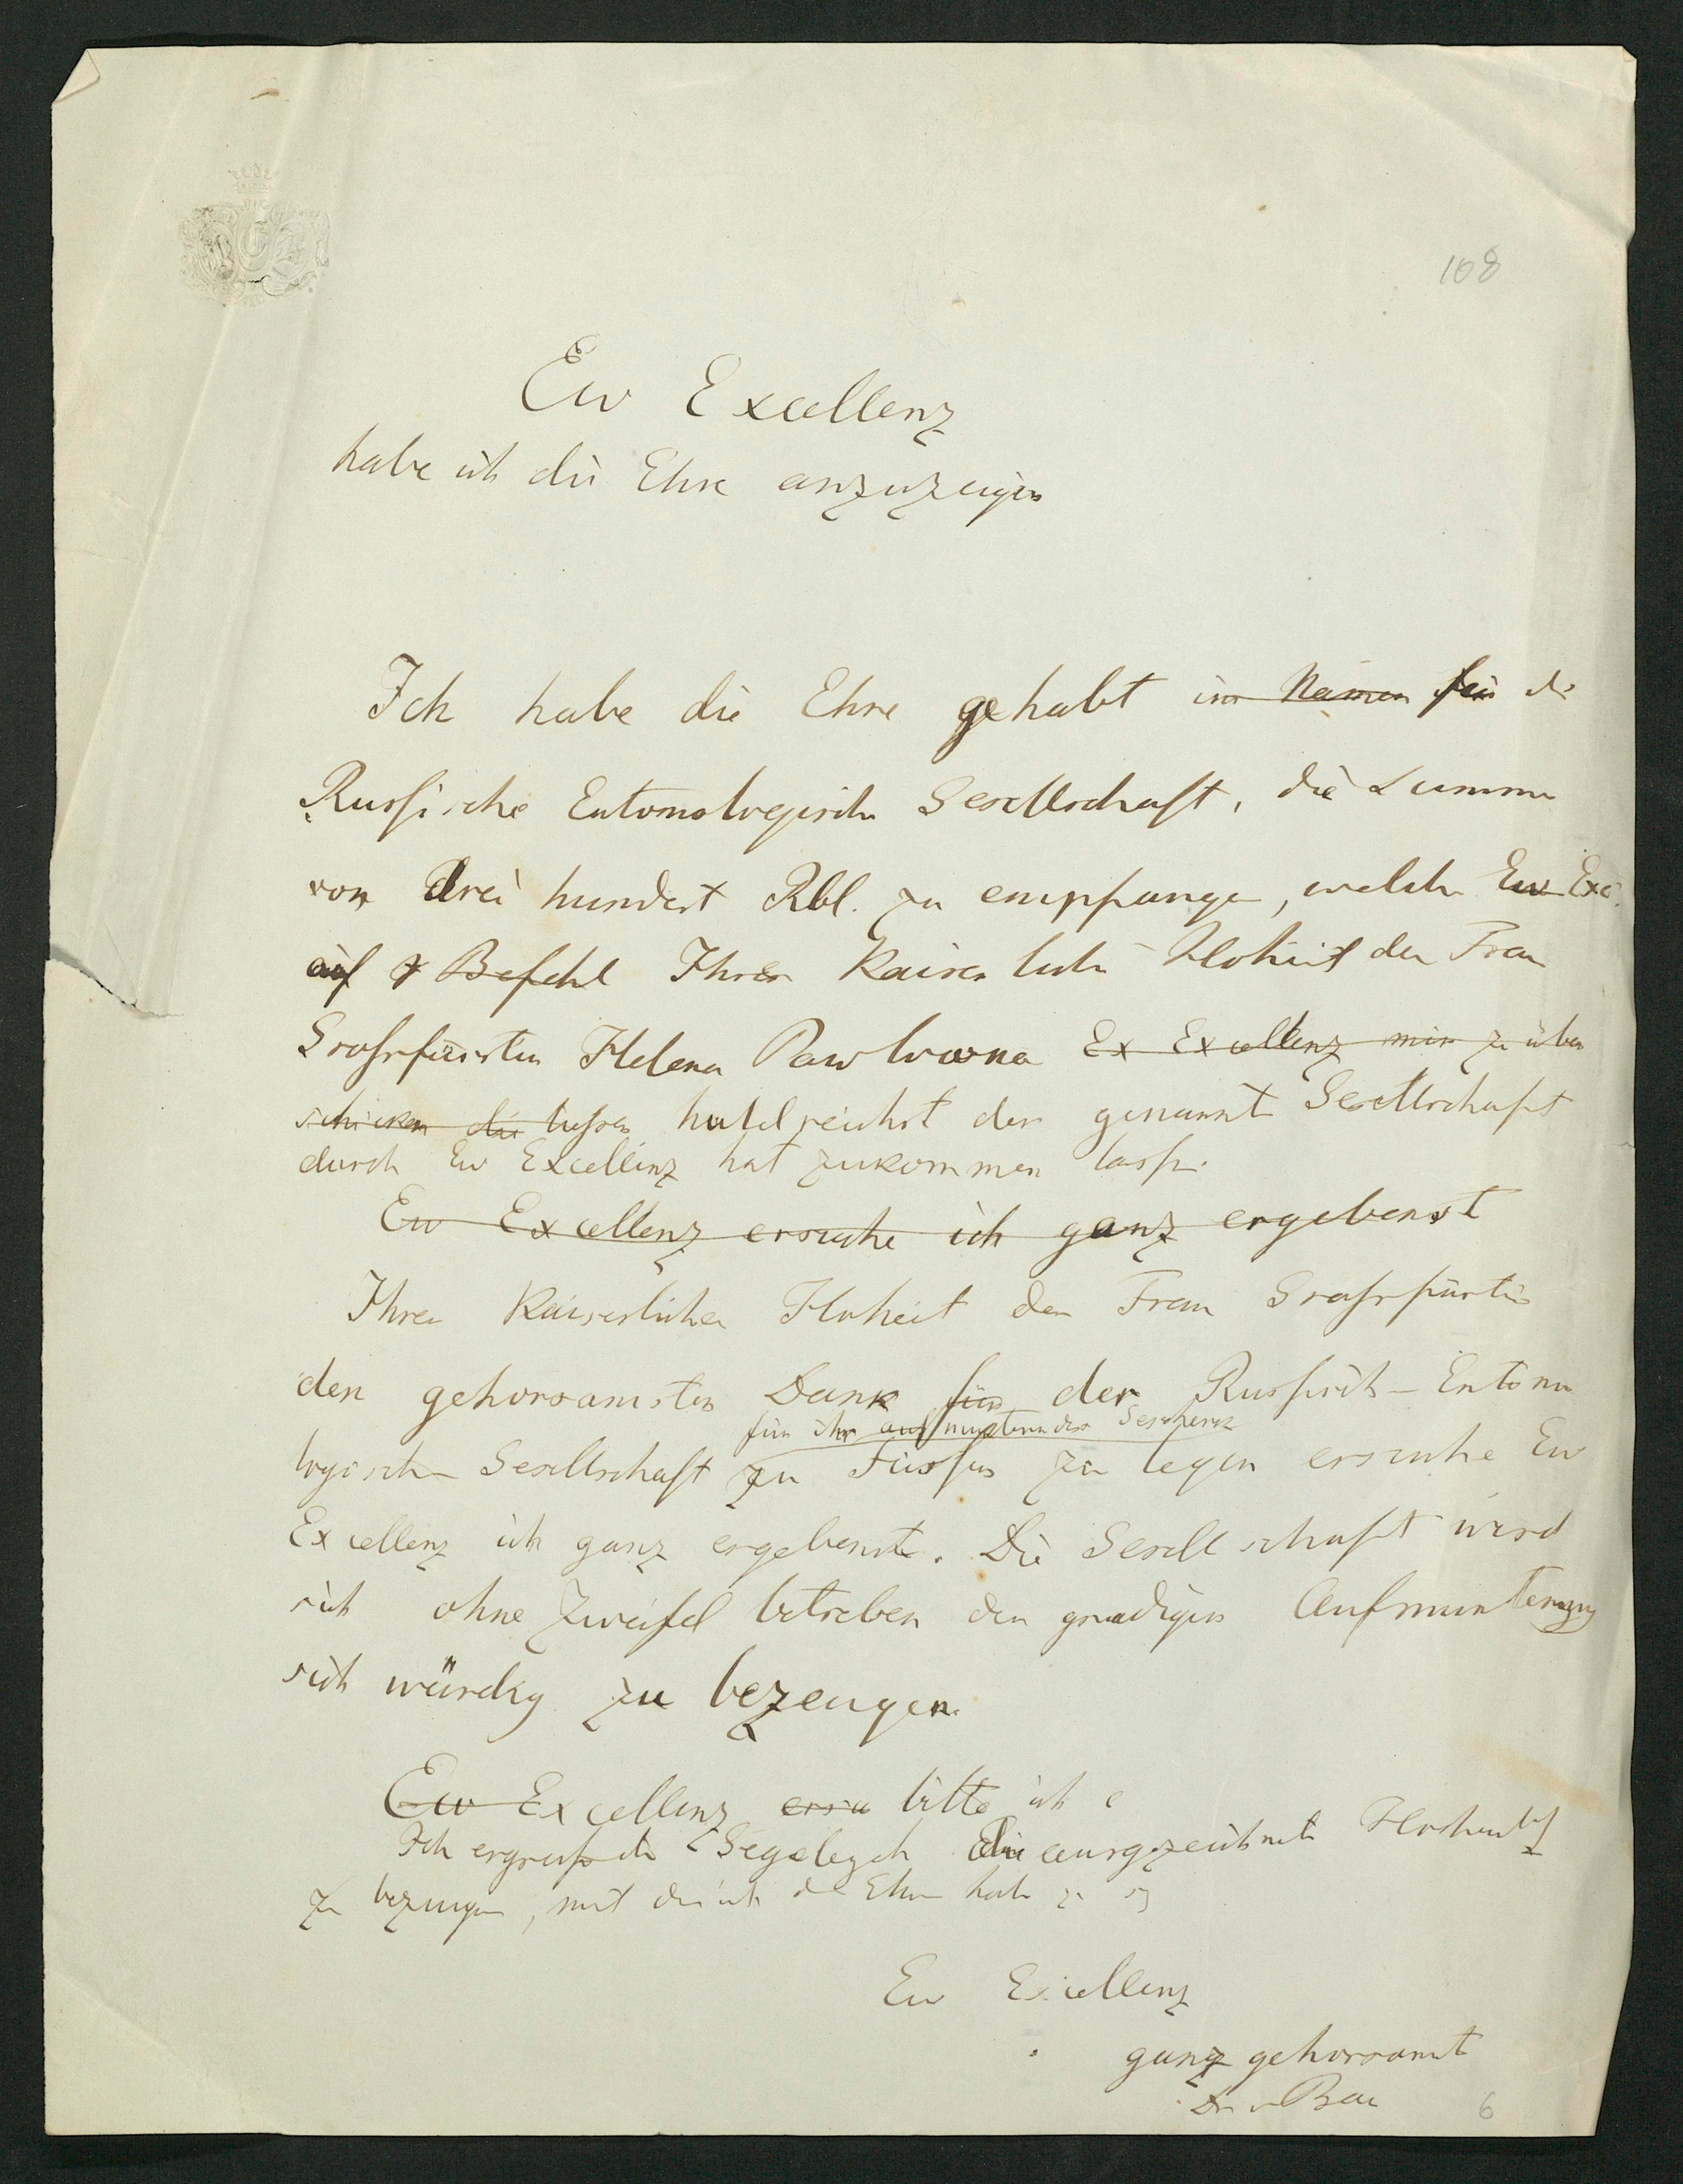 108
Ew Excellenz
habe ich die Ehre anzuzeigen
Ich habe die Ehre gehabt im Namen für die
Russische Entomologische Gesellschaft, die Summe
von drei hundert Rbl. zu empfangen, welche Ew Exc.
auf Befehl Ihrer Kaiserliche Hoheit der Frau
Grossfürstin Helena Pawlowna Ex Excellenz mir zu über
schicken die lassen huldreichst der genannt Gesellschaft
durch Ew Excellenz hat zukommen lassen.
Ew Excellenz ersuche ich ganz ergebenst
Ihrer Kaiserlichen Hoheit der Frau Grossfürstin
den gehorsamsten Dank für der Russisch-Entomo
für ihr aufmunterndes Geschenk
logischen Gesellschaft zu Füssen zu legen ersuche Ew
Excellenz ich ganz ergebenst. Die Gesellschaft wird
sich ohne Zweifel bestreben der gnädigen Aufmunterung
sich würdig zu bezeugen.
Ew Excellenz ersu bitte ich e
Ich ergreife die Gegelegenh die ausgezeichnete Hochacht
zu bezeugen, mit der ich die Ehre habe zu
Ew Excellenz
ganz gehorsamst
Dr v Baer
6